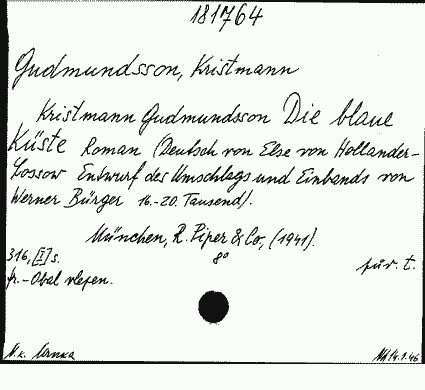 181764
Gudmundsson, Kristmann
Kristmann Gudmundsson Die blaue
Küste Roman (Deutsch von Else von Hollander-
Lossow Entwurf des Umschlags und Einbands von
Werner Bürger 16.-20. Tausend).
München, R. Piper & Co, (1941).
316, [I] s. 8°
pur. t.
fr.-Obal vlepen.
14.1.46